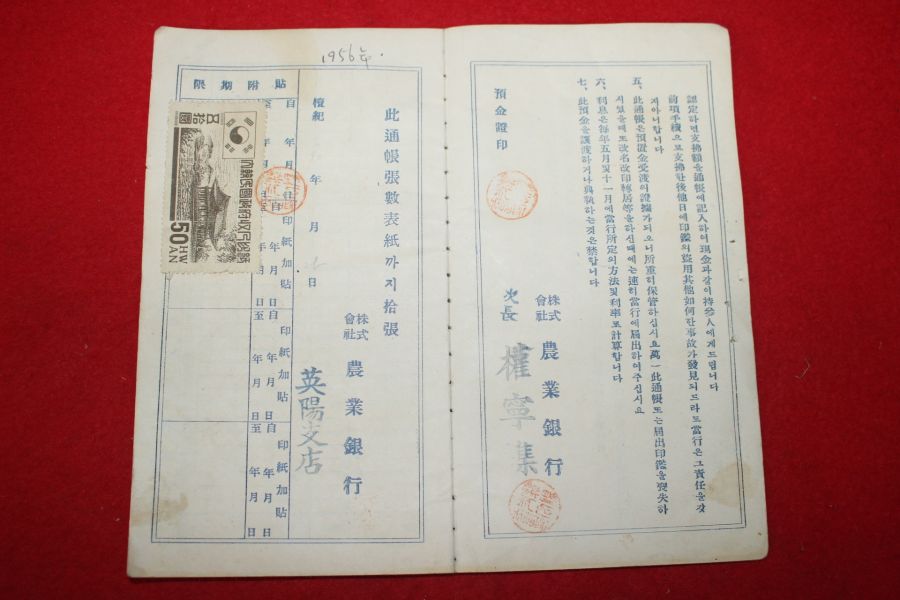 認定하면支拂額을通帳에記入하여現金과같이持參人에게드립니다
前項手續으로支拂한後他日에印鑑의盜用其他如何한事故가發見되드라도當行은그責任을갖
지아니합니다
五、此通帳은預置金受渡의證據가되오니所重히保管하십시요萬一此通帳또는届出印鑑을喪失하
시었을때또改名改印轉居等을하신때에는速히當行에届出하여주십시요
六、利息은每年五月및十一月에當行所定의方法및利率로計算합니다
七、此預金을讓渡하거나典執하는것은禁합니다
預金證印
株式會社 農業銀行
次長 權寧集
1956年.
此通帳張數表紙까지拾張
檀紀 年 月 日
株式會社 農業銀行
英陽支店
貼附期限
自 年 月 日
至 年 月 日
印紙加貼
自 年 月 日
至 年 月 日
印紙加貼
自 年 月 日
至 年 月 日
印紙加貼
大韓民國政府收入印紙
50 HWAN